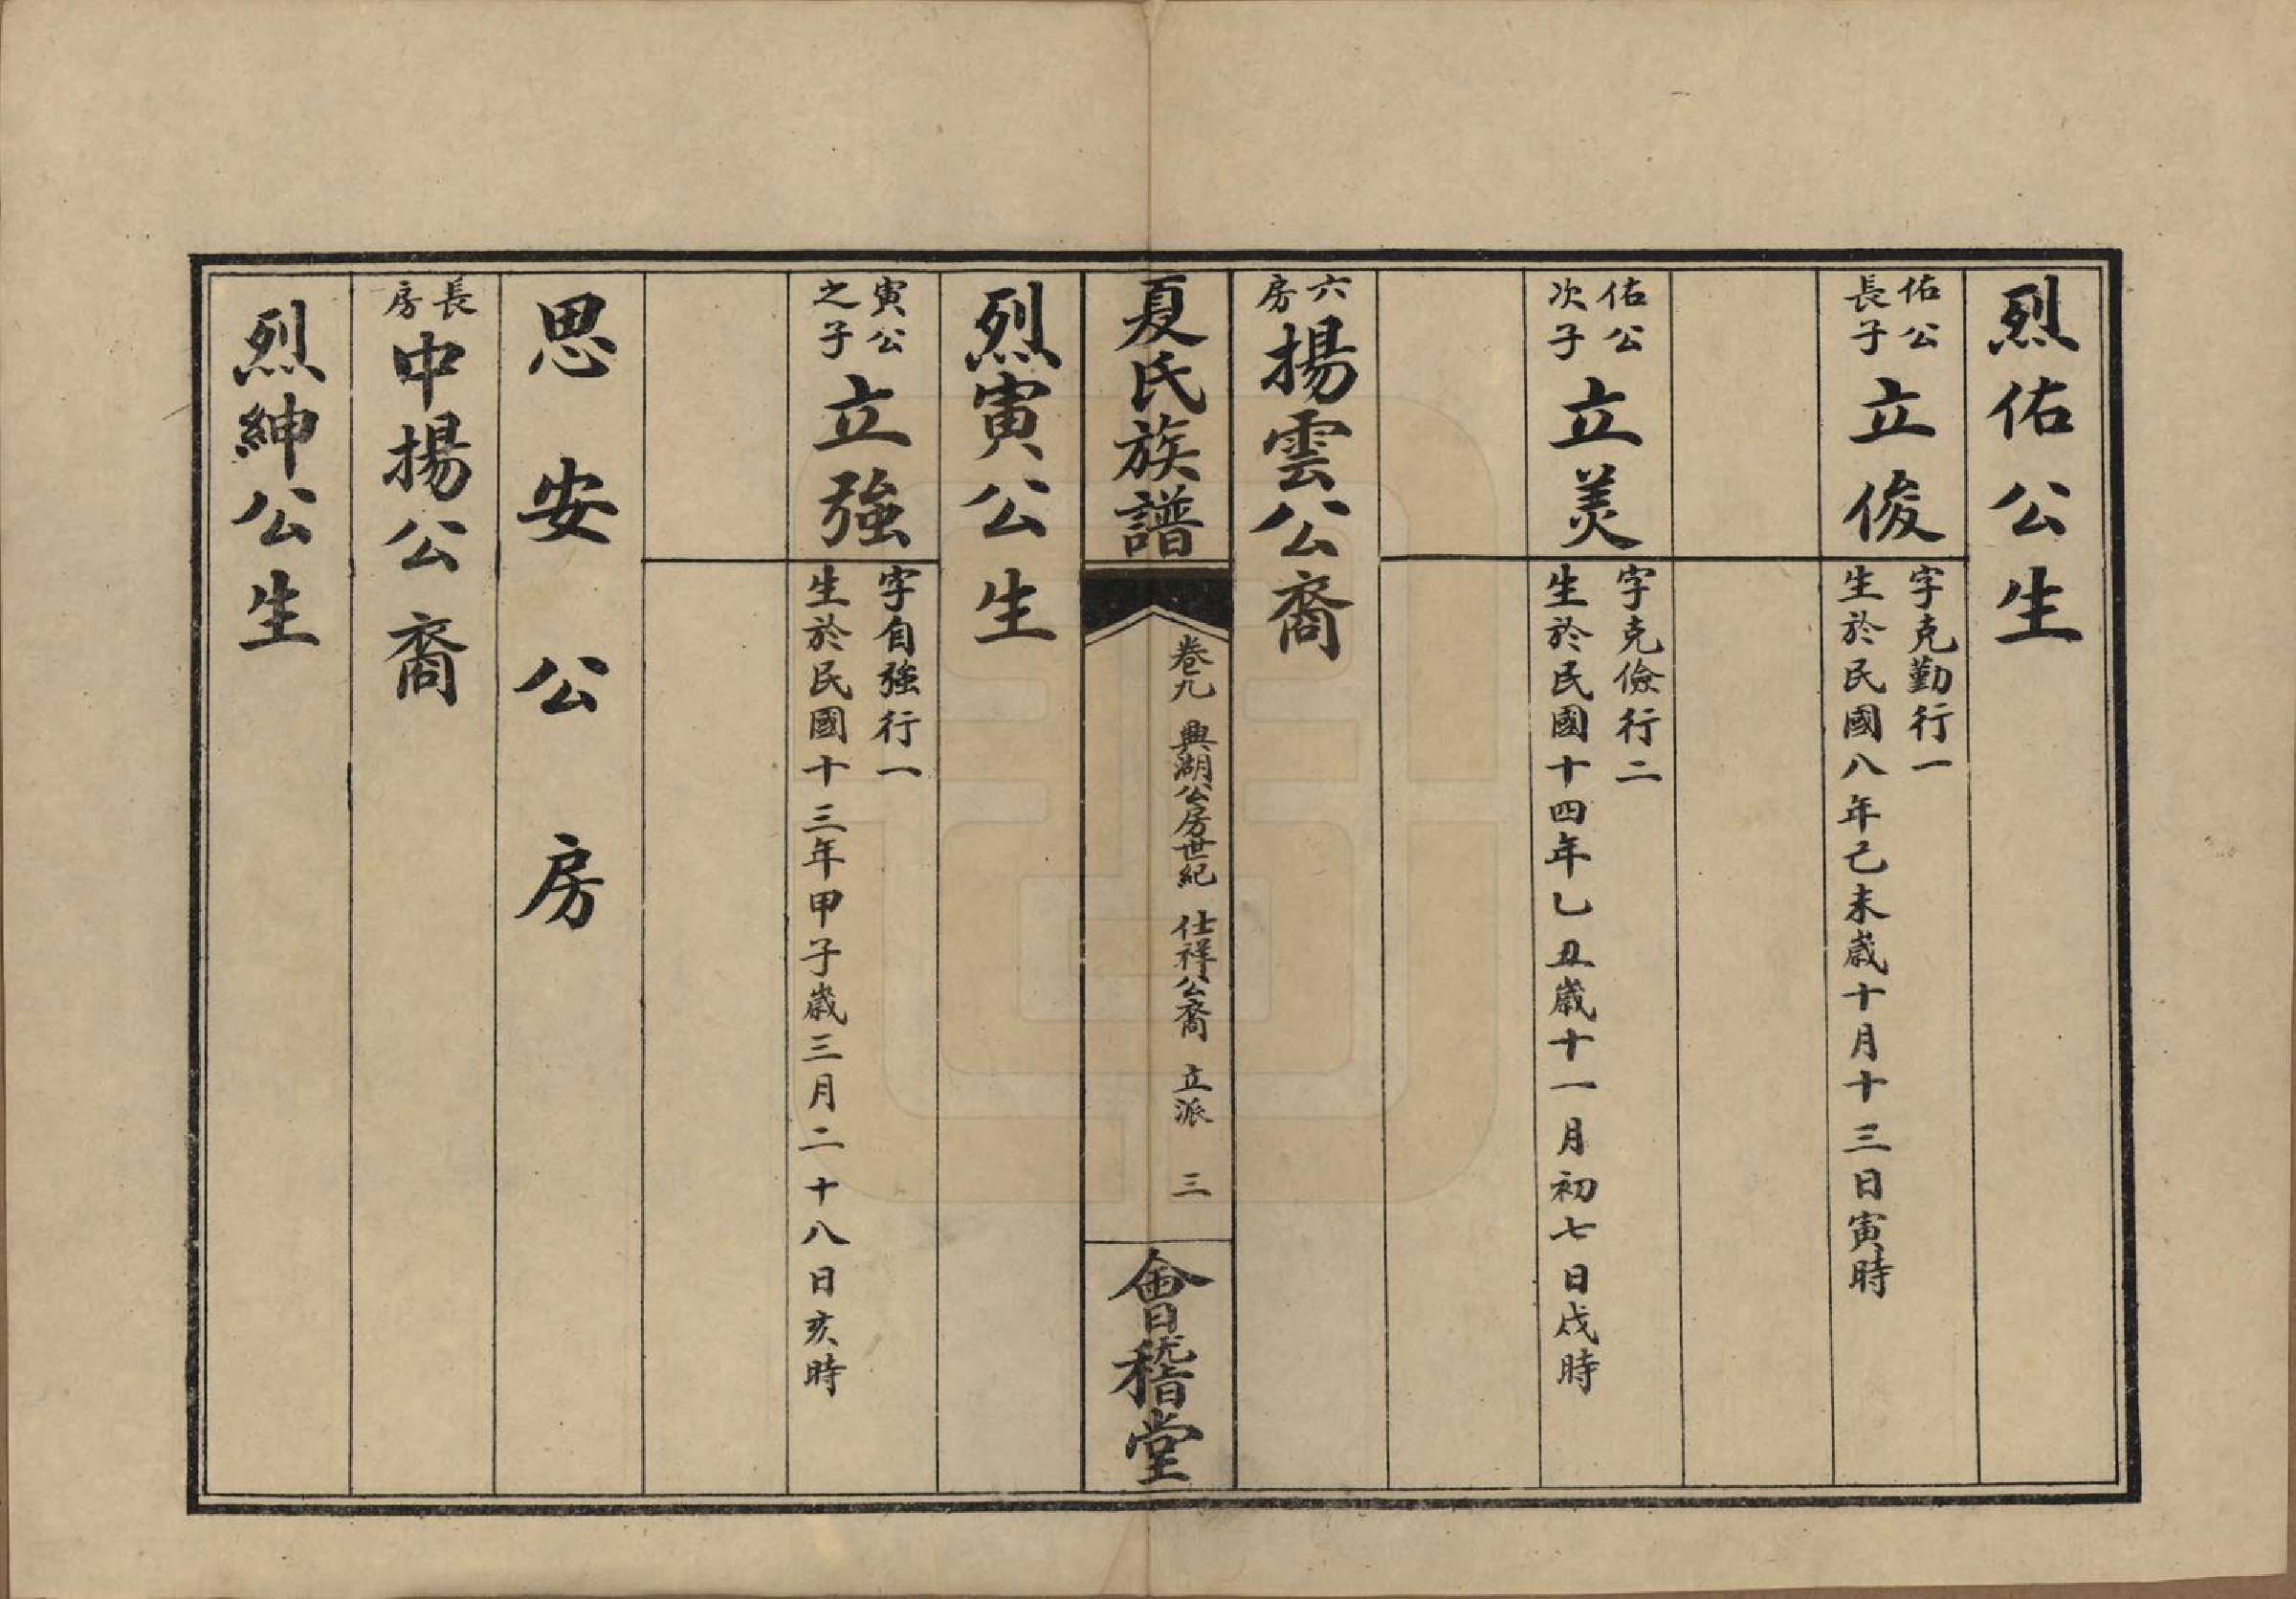 烈佑公生
佑公
長子
立俊
字克勤行一
生於民國八年己未歲十月十三日寅時
佑公
次子
立美
字克儉行二
生於民國十四年乙丑歲十一月初七日戌時
六
房
揚雲公裔
夏氏族譜
卷九 興湖公房世紀 仕祥公裔 立派 三
會稽堂
烈寅公生
寅公
之子
立強
字自強行一
生於民國十三年甲子歲三月二十八日亥時
思安公房
長
房
中揚公裔
烈紳公生